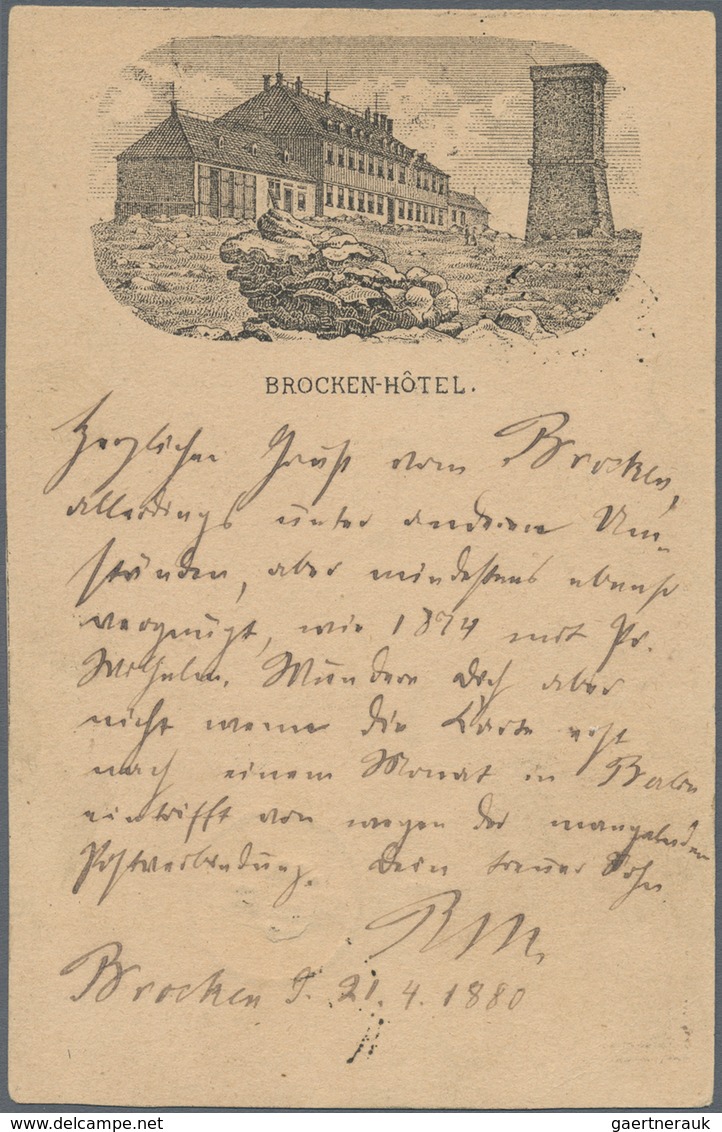 BROCKEN-HÔTEL.
Herzlichen Gruß vom Brocken,
allerdings unter anderen Um-
ständen, aber mindestens ebenso
vergnügt, wie 1874 mit Pr.
Wilhelm. Wundere Dich aber
nicht wenn die Karte erst
nach einem Monat in Berlin
eintrifft von wegen der mangelnden
Postverbindung. Dein treuer Sohn
Brocken 21.4.1880
gaertnerauk